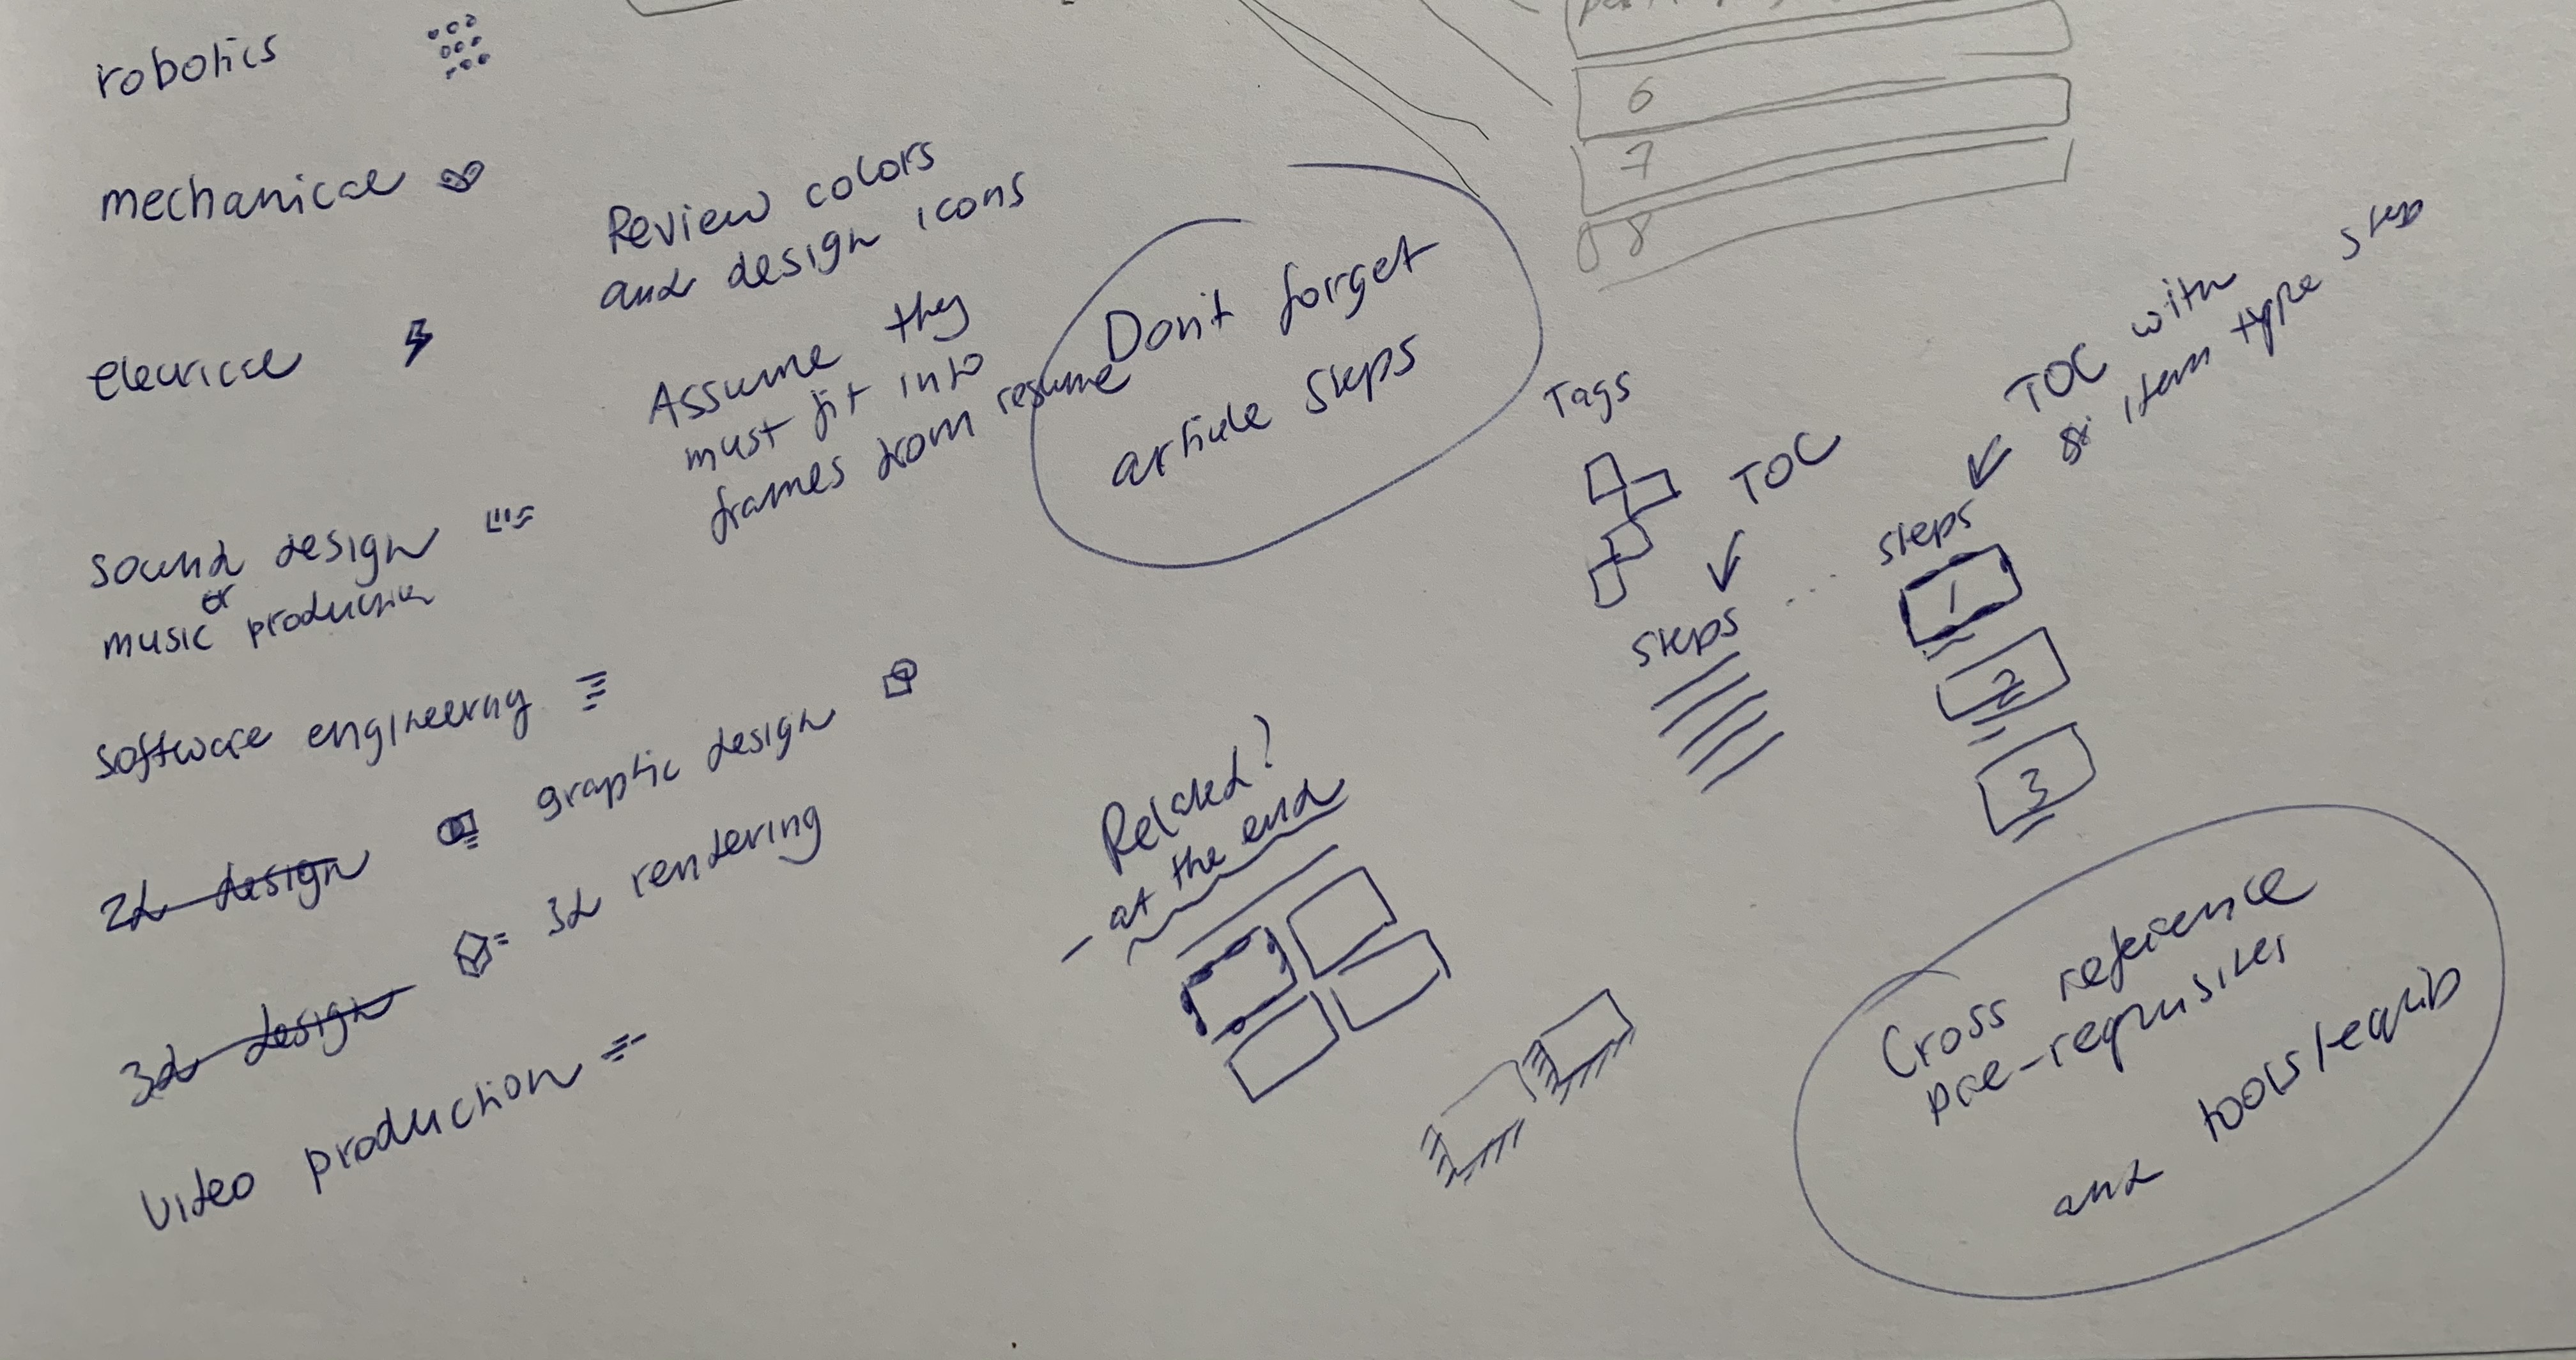 robotics
mechanical
electrical
sound design
or
music production
software engineering
2d design
graphic design
3d design
3d rendering
video production
Review colors
and design icons
Assume they
must fit into
frames from resume
Don't forget
article steps
6
7
8
Tags
TOC
steps
TOC with
item type step
steps
1
2
3
Related?
- at the end
Cross reference
pre-requisites
and tools/equip